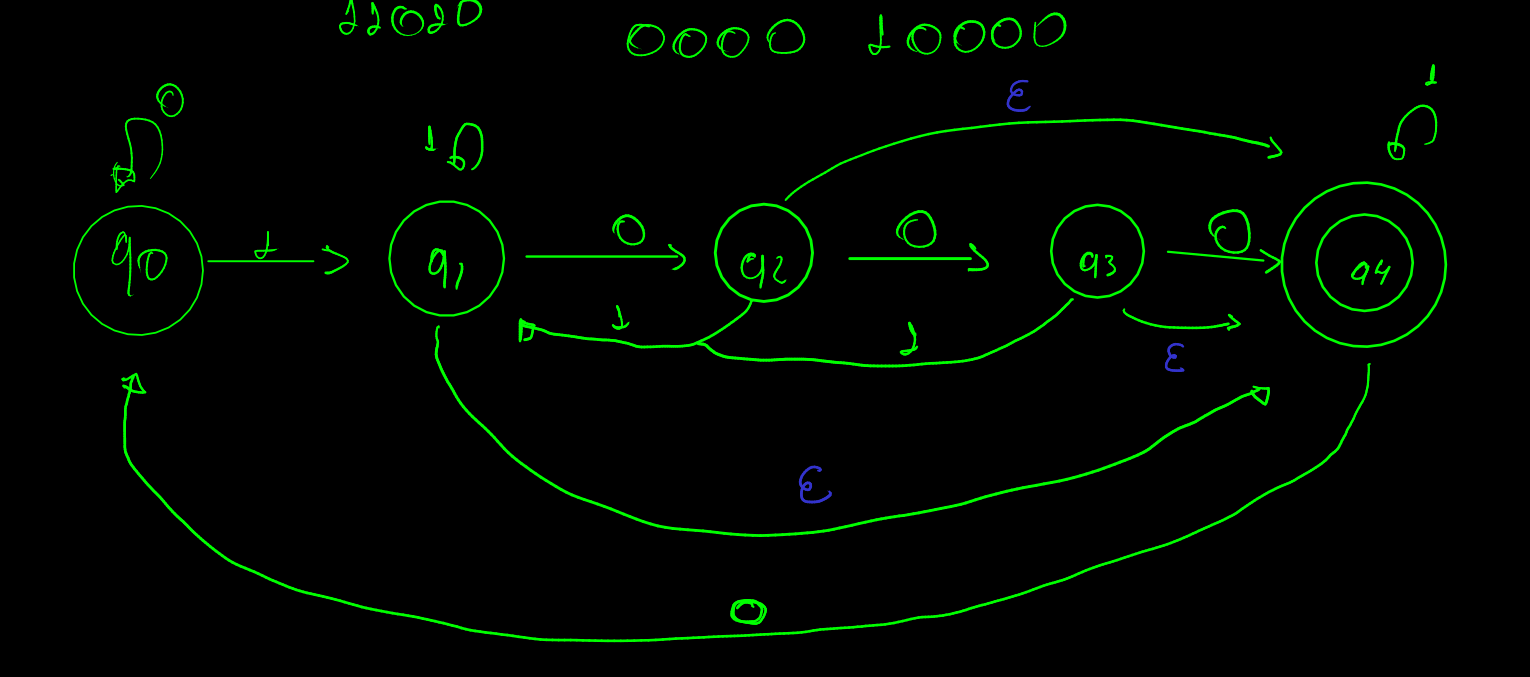 11010
0000 10000
ε
1
0
1
q0
1
q1
0
q2
0
q3
0
q4
1
1
ε
ε
0